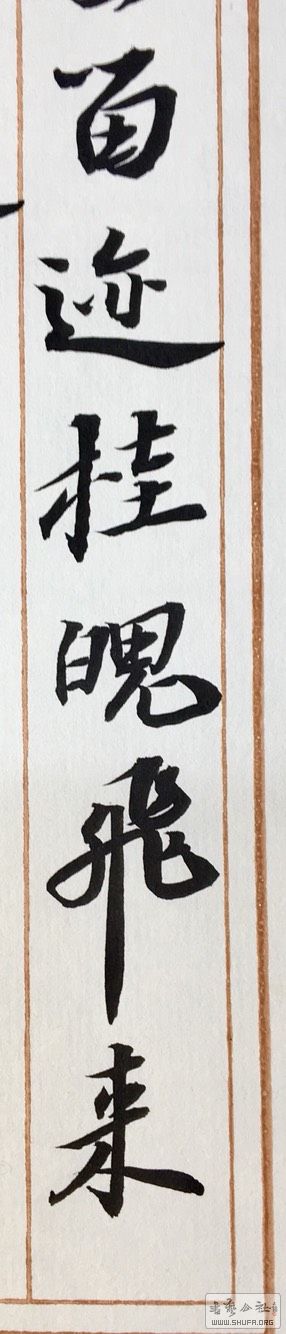 留迹桂魄飛来
書藝公社
WWW.SHUFA.ORG